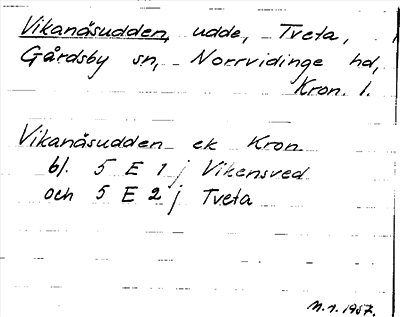 Vikanäsudden, udde, Tveta,
Gårdsby sn, Norrvidinge hd,
Kron. l.
Vikanäsudden ek Kron
bl. 5 E 1 j Vikensved
och 5 E 2 j Tveta
M.A. 1957.